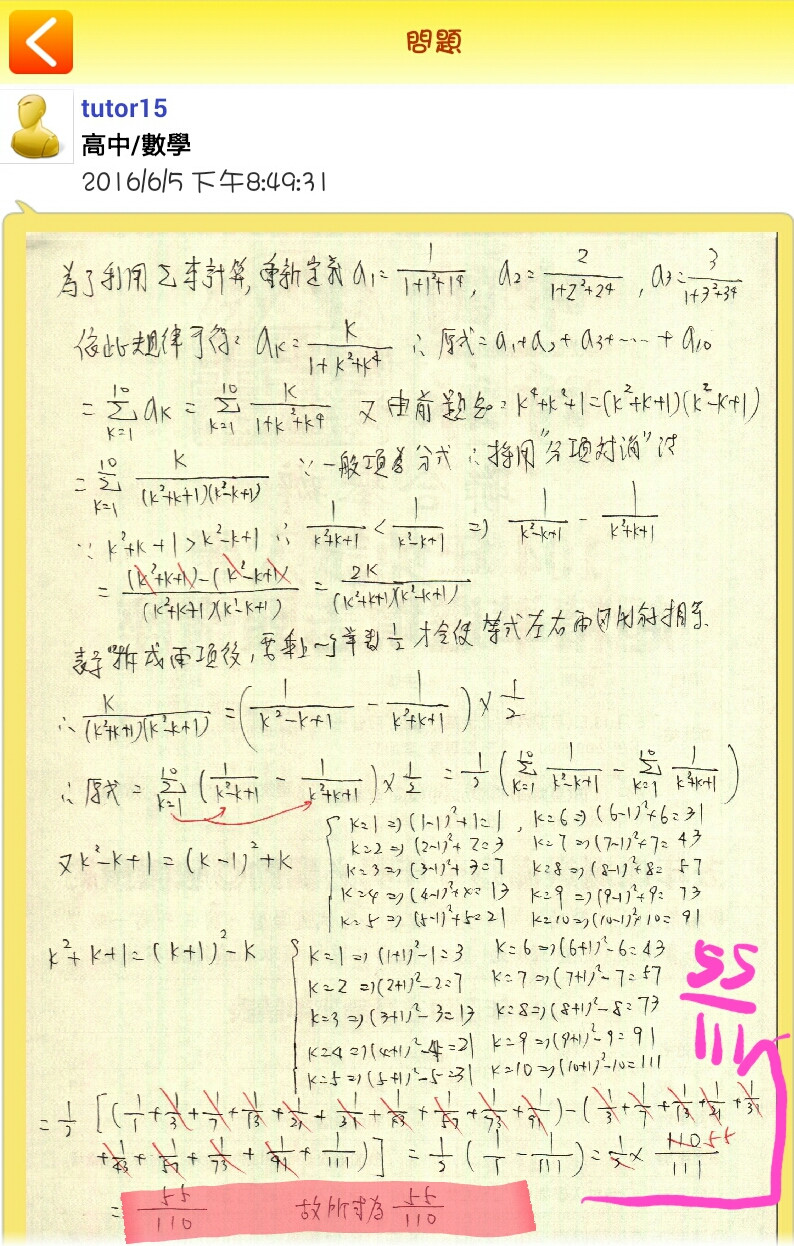 問題
tutor15
高中/數學
2016/6/5 下午8:49:31
為了利用Σ來計算, 重新定義 a₁=1/(1+1²+1⁴), a₂=2/(1+2²+2⁴), a₃=3/(1+3²+3⁴)
依此規律可得: aₖ=k/(1+k²+k⁴) ∴原式=a₁+a₂+a₃+⋯+a₁₀
=Σ(k=1→10) aₖ = Σ(k=1→10) k/(1+k²+k⁴) 又由前題知: k⁴+k²+1=(k²+k+1)(k²-k+1)
=Σ(k=1→10) k/((k²+k+1)(k²-k+1)) ∵一般項為分式 ∴採用"分項對消"法
∵ k²+k+1>k²-k+1 ∴ 1/(k²+k+1) < 1/(k²-k+1) ⇒ 1/(k²-k+1) - 1/(k²+k+1)
= ((k²+k+1)-(k²-k+1))/((k²+k+1)(k²-k+1)) = 2k/((k²+k+1)(k²-k+1))
表示"拆成兩項後, 要乘上一個 1/2 才會使等式左右兩相等
∴ k/((k²+k+1)(k²-k+1)) = (1/(k²-k+1) - 1/(k²+k+1))×1/2
∴原式 = Σ(k=1→10) (1/(k²-k+1) - 1/(k²+k+1))×1/2 = 1/2(Σ(k=1→10) 1/(k²-k+1) - Σ(k=1→10) 1/(k²+k+1))
又k²-k+1=(k-1)²+k
k=1⇒(1-1)²+1=1, k=6⇒(6-1)²+6=31
k=2⇒(2-1)²+2=3 k=7⇒(7-1)²+7=43
k=3⇒(3-1)²+3=7 k=8⇒(8-1)²+8=57
k=4⇒(4-1)²+4=13 k=9⇒(9-1)²+9=73
k=5⇒(5-1)²+5=21 k=10⇒(10-1)²+10=91
k²+k+1=(k+1)²-k
k=1⇒(1+1)²-1=3 k=6⇒(6+1)²-6=43
k=2⇒(2+1)²-2=7 k=7⇒(7+1)²-7=57
k=3⇒(3+1)²-3=13 k=8⇒(8+1)²-8=73
k=4⇒(4+1)²-4=21 k=9⇒(9+1)²-9=91
k=5⇒(5+1)²-5=31 k=10⇒(10+1)²-10=111
55/111
=1/2[(1/1+1/3+1/7+1/13+1/21+1/31+1/43+1/57+1/73+1/91)-(1/3+1/7+1/13+1/21+1/31
+1/43+1/57+1/73+1/91+1/111)] = 1/2(1/1-1/111)=1/2×110/111 55
=55/110 故所求為 55/110